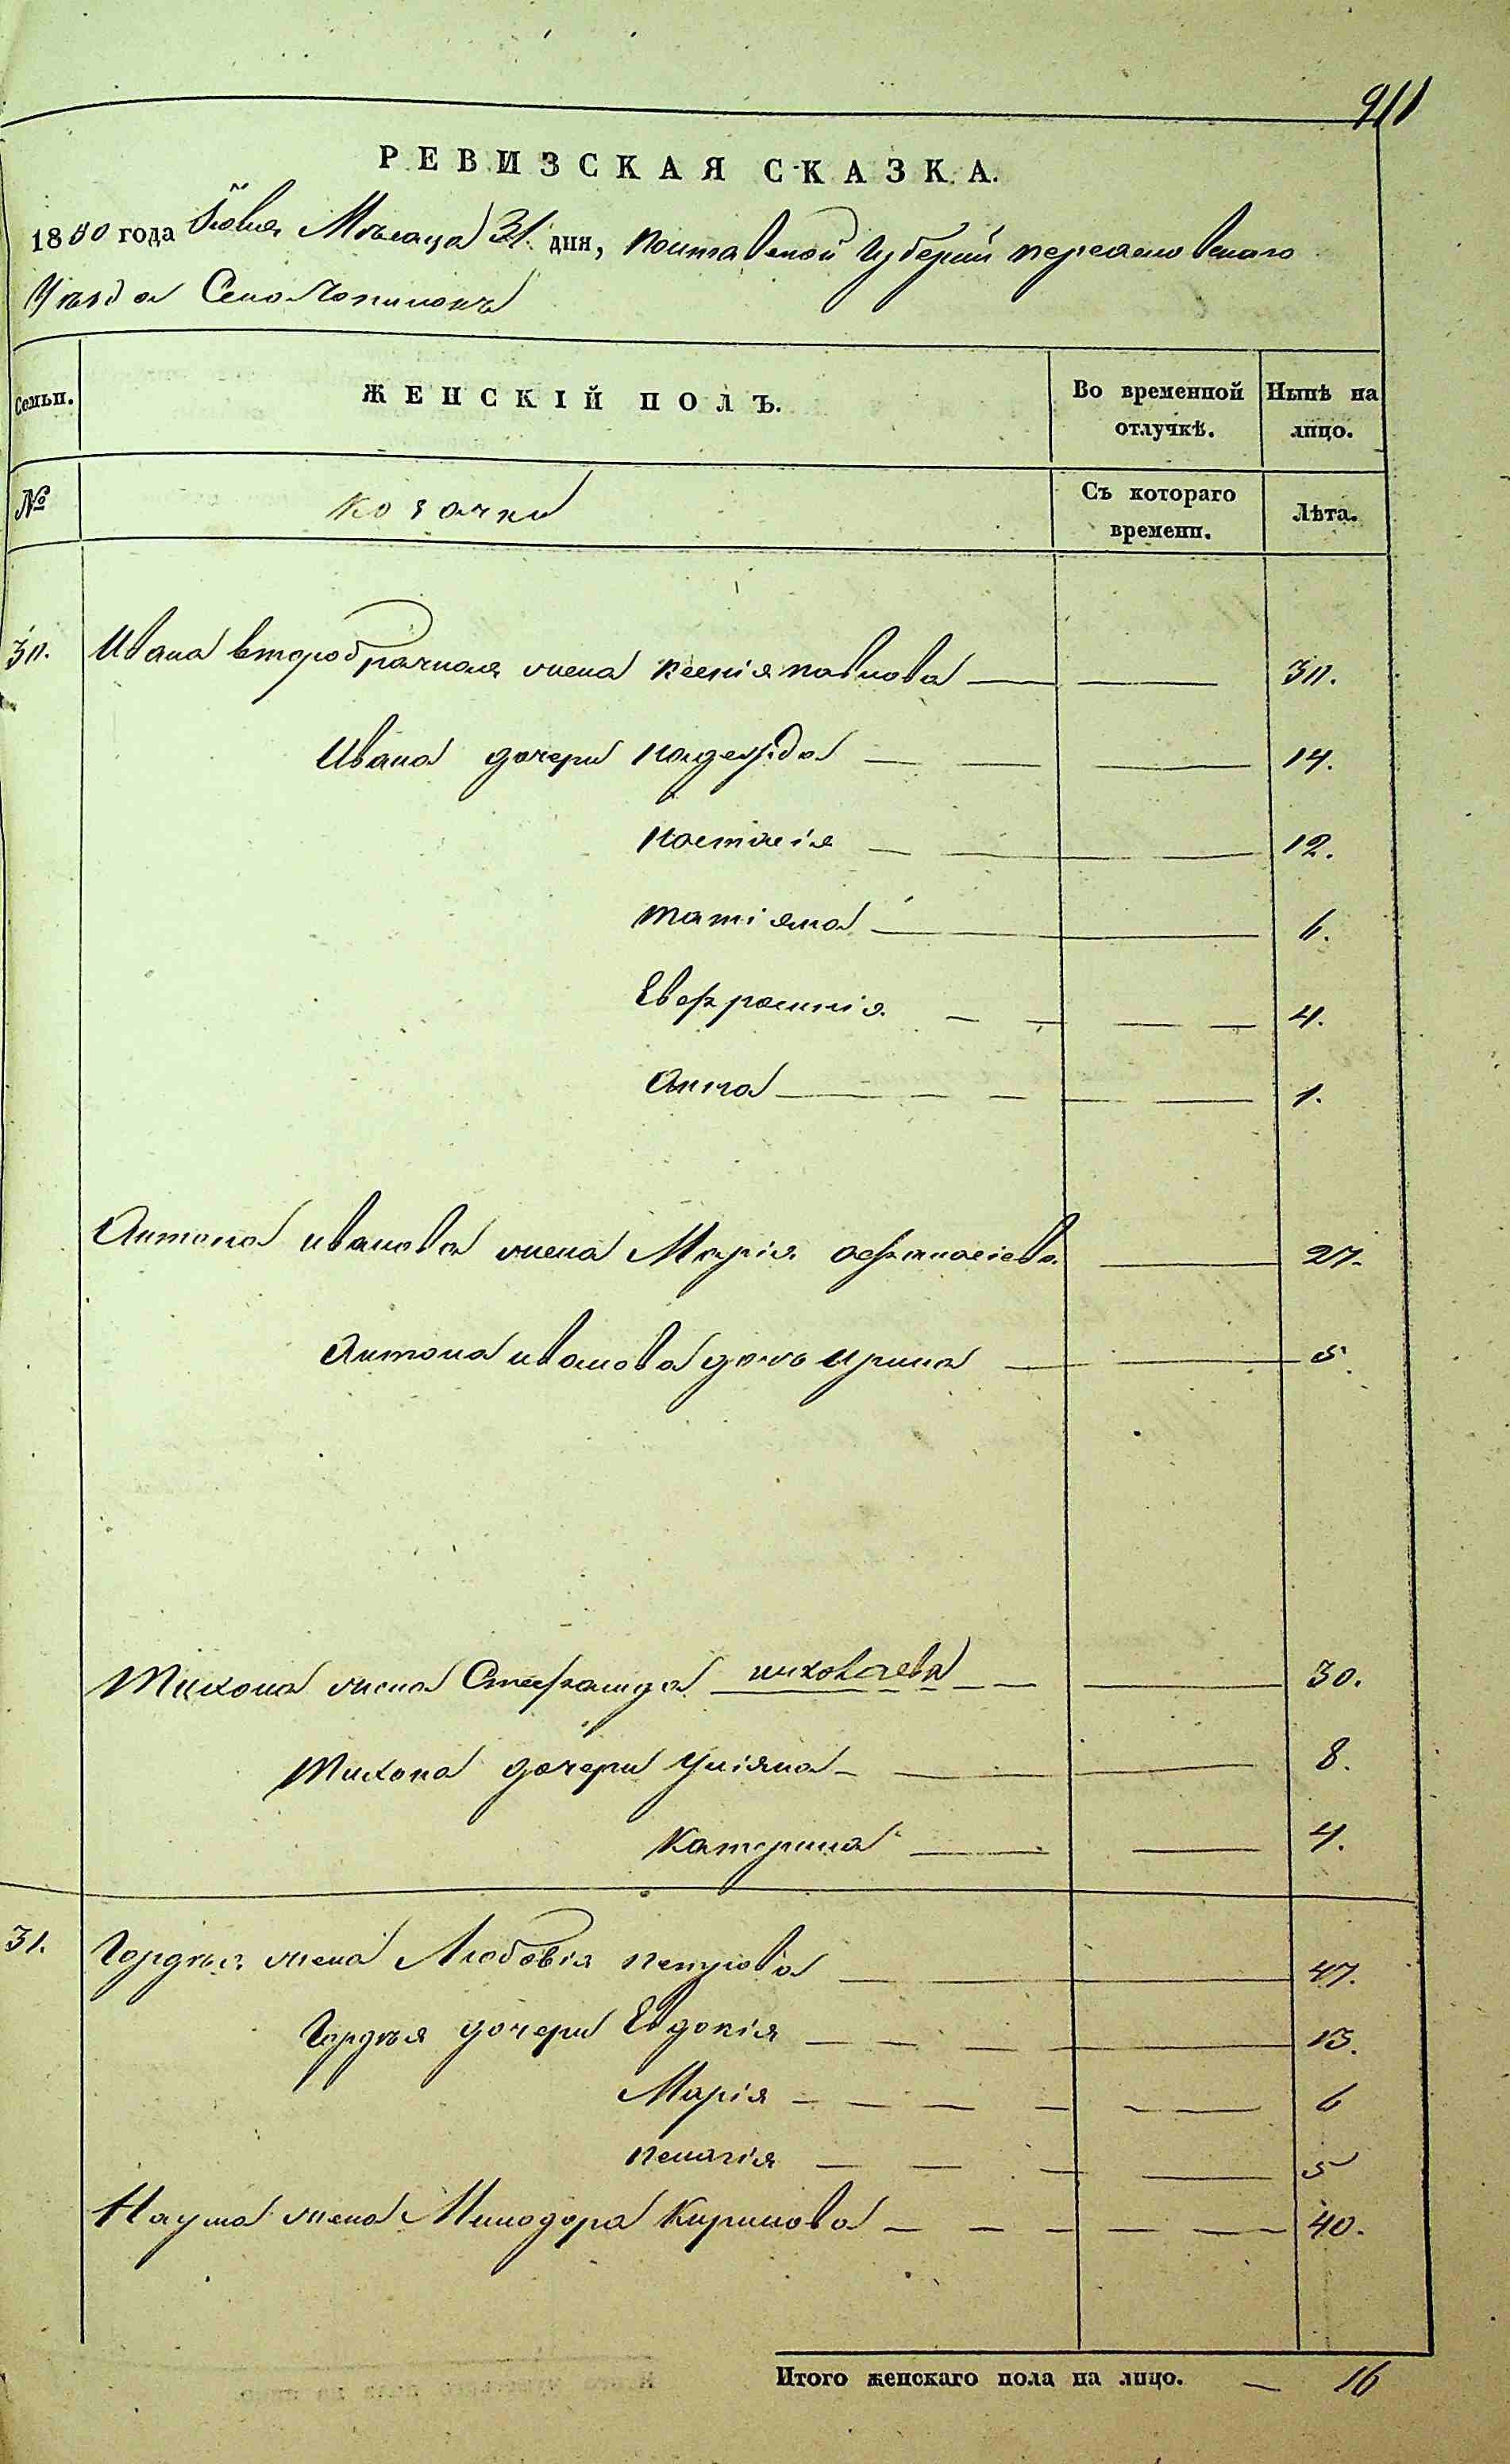 911
РЕВИЗСКАЯ СКАЗКА.
1850 года Іюля Мѣсяца 31. дня, полтавской Губерніи переяславскаго
Уѣзда Село
Семьи.
ЖЕНСКІЙ ПОЛЪ.
Во временной отлучкѣ.
Нынѣ на лицо.
№
козачки
Съ котораго времени.
Лѣта.
30. Ивана второбрачная жена ксенія павлова 30.
Ивана дочери надежда 14.
настасія 12.
татіяна 6.
Евфросинія 4.
Анна 1.
Антона иванова жена Марія афанасіева 27.
Антона иванова дочь ирина 5.
тихона жена Стефанида николаева 30.
тихона дочери уліяна 8.
катерина 4.
31. Гордѣя жена Любовія петрова 47.
Гордѣя дочери Евдокія 13.
Марія 6
пелагія 5
Наума жена Минодора кирилова 40.
Итого женскаго пола на лицо. 16